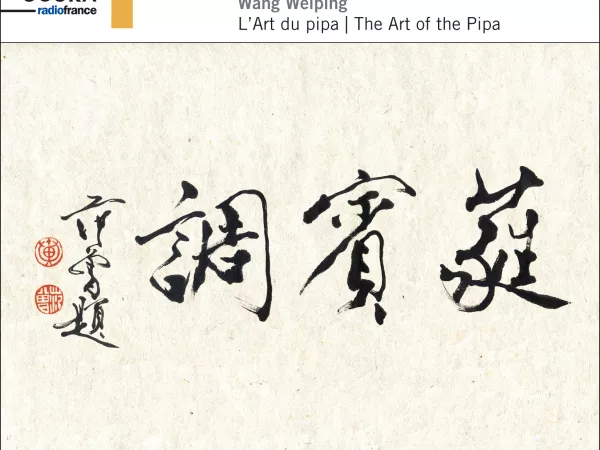 OCORA
radiofrance
Wang Weiping
L'Art du pipa | The Art of the Pipa
蕤賓調
范曾題